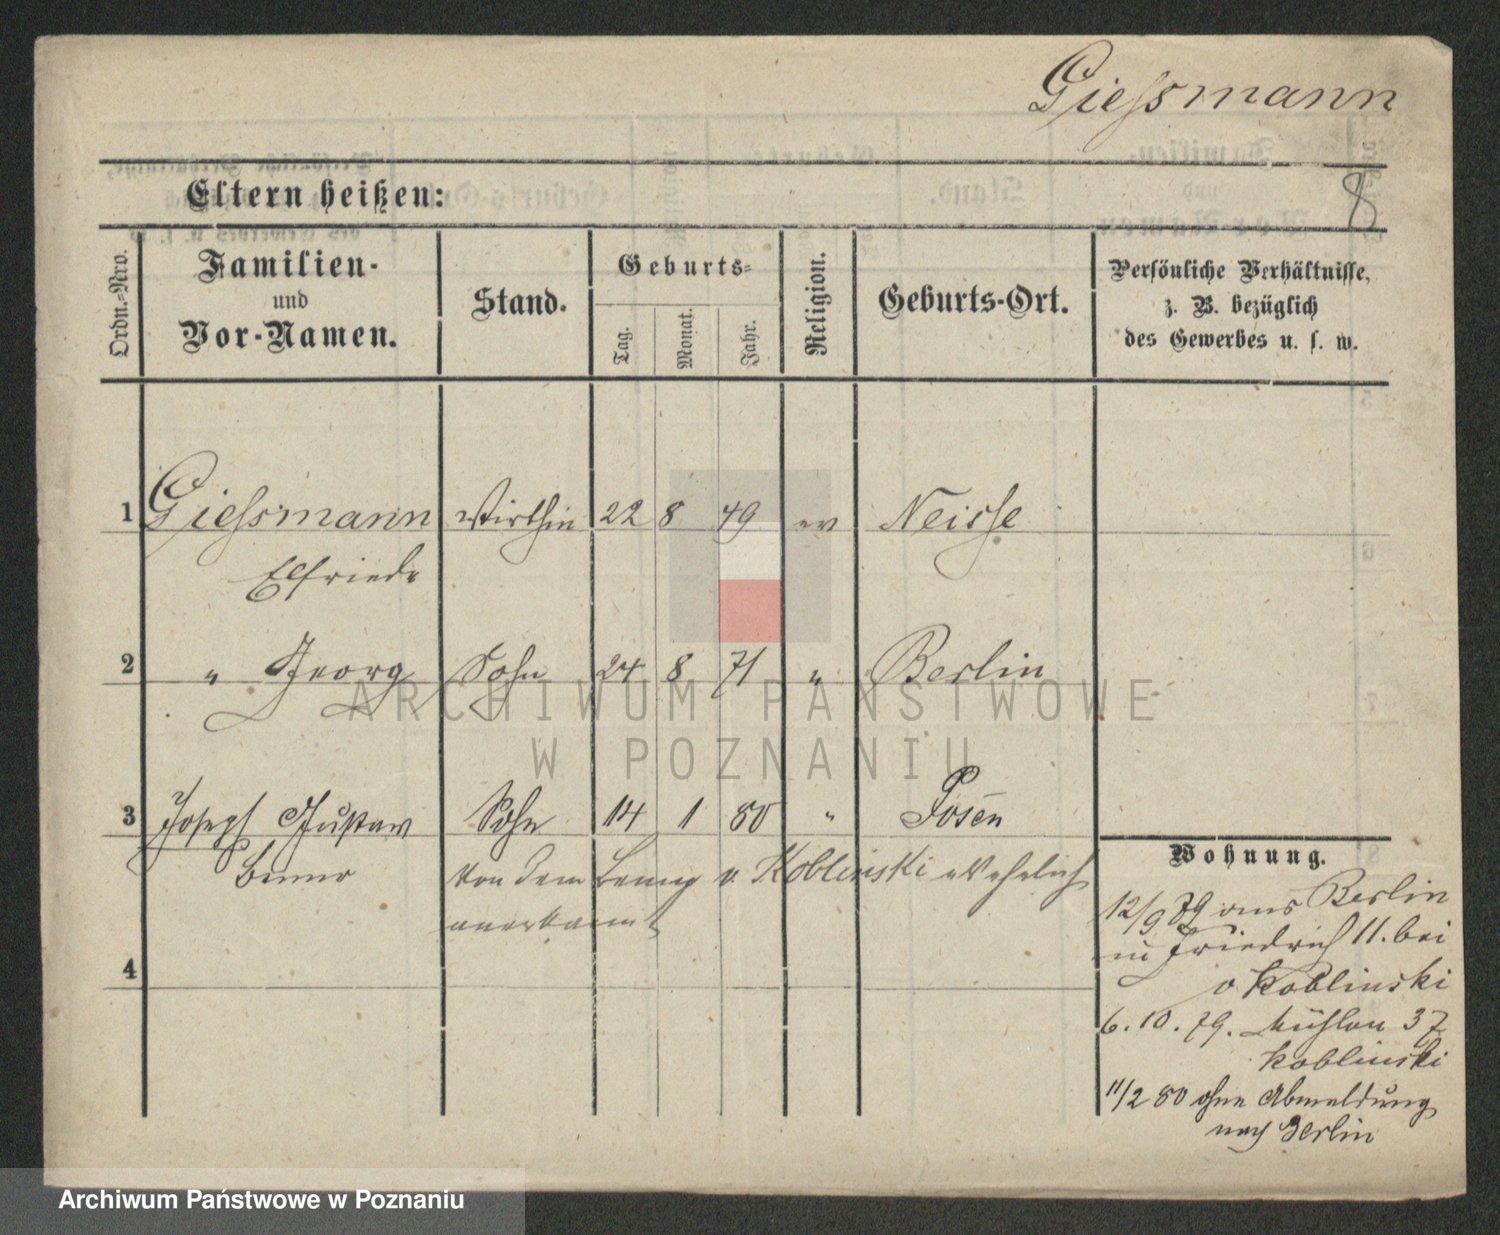 Giessmann
8
Eltern heißen:
Ordn.-Nro.
Familien-
und
Vor-Namen.
Stand.
Geburts-
Tag.
Monat.
Jahr.
Religion.
Geburts-Ort.
Persönliche Verhältnisse,
z. B. bezüglich
des Gewerbes u. s. w.
1 Giessmann Wirthin 22 8 49 ev Neisse
Elfriede
2 " Georg Sohn 24 8 71 " Berlin
3 Joseph Gustav Sohn 14 1 80 " Posen
Benno von dem Benny v. Koblinski
anerkannt
4
Wohnung.
12/9 79 aus Berlin
in Friedrich 11. bei
v Koblinski
6. 10. 79. Mühlen 37
Koblinski
11/2 80 ohne Abmeldung
nach Berlin
ARCHIWUM PAŃSTWOWE
W POZNANIU
Archiwum Państwowe w Poznaniu